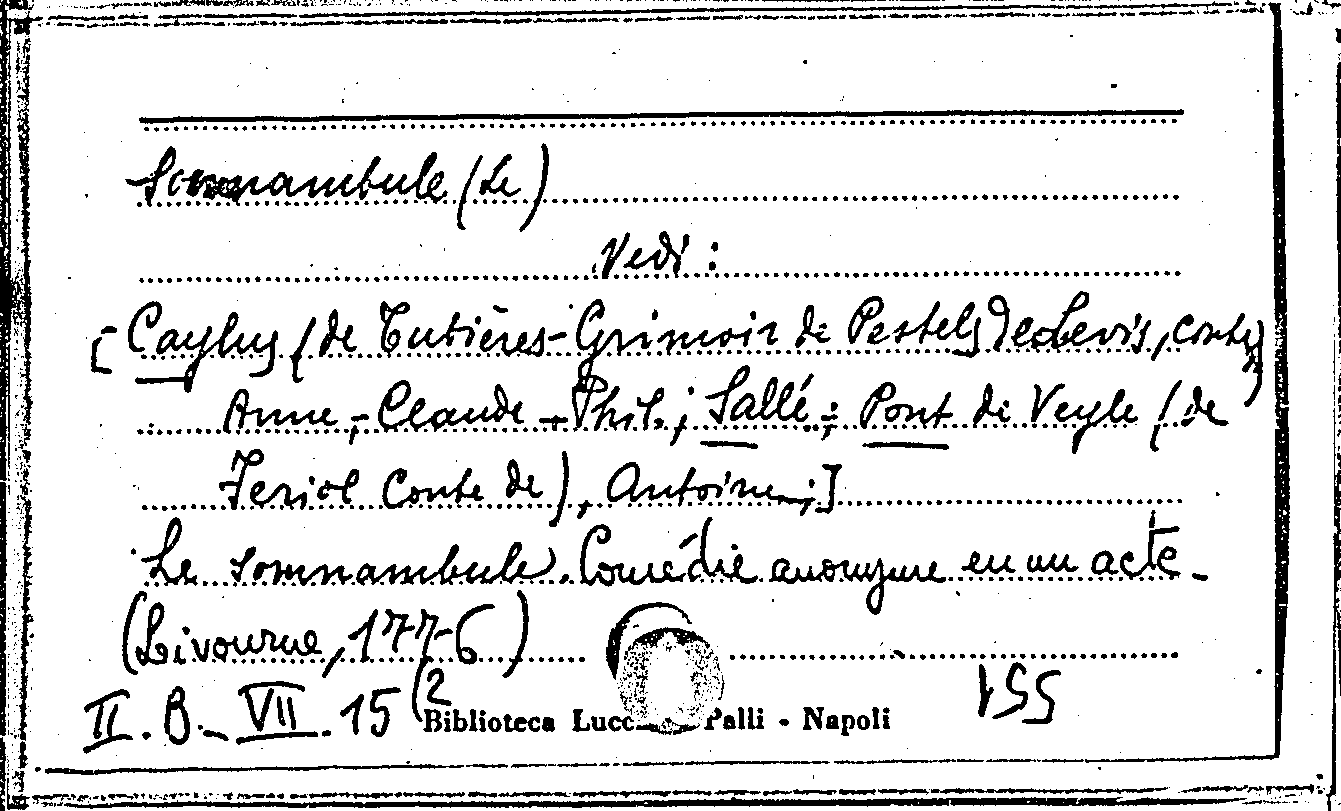 Somnambule (Le)
Vedi:
[Caylus (de Tubières-Grimoir de Pestels de Levis, conte)
Anne,-Claude-Phil.; Sallé; Pont de Veyle (de
Feriol Conte de), Antoine;]
Le somnambule. Comédie anonyme en un acte.
(Livourne, 1776)
II.B.-VII.15(2
Biblioteca Lucc Palli - Napoli